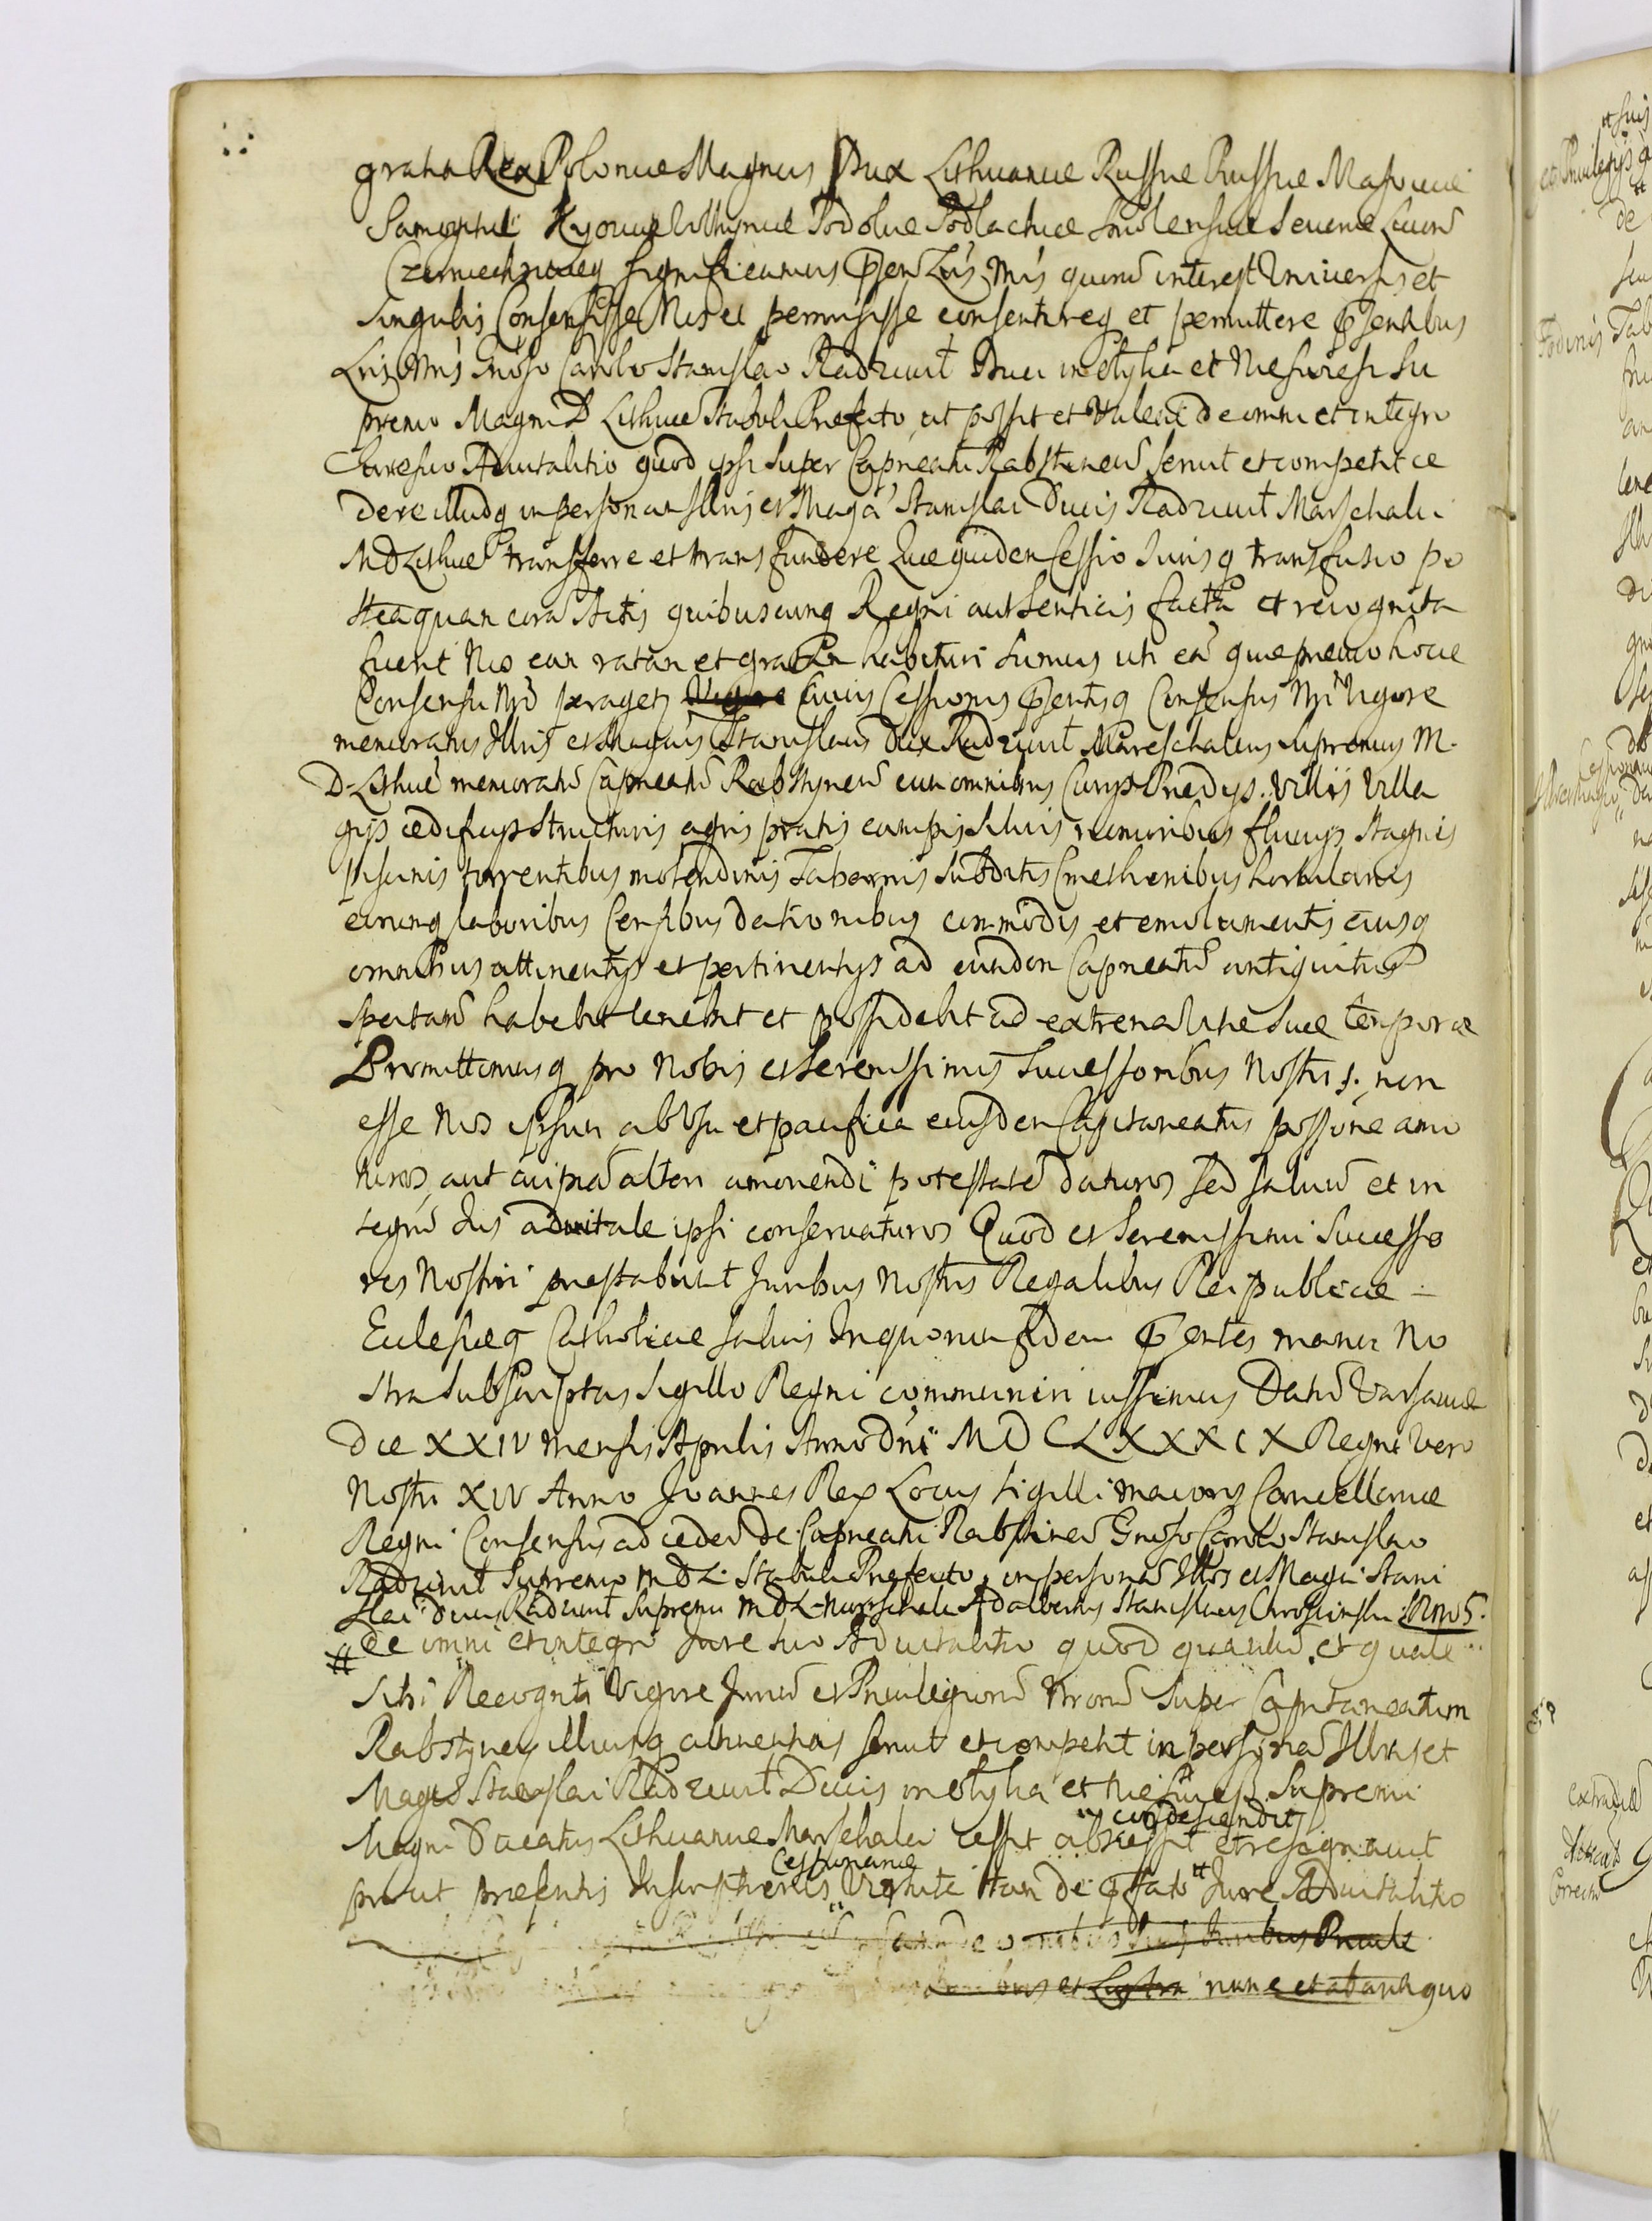 gratia Rex Poloniae Magnus Dux Lithuaniae Russiae Prussiae Masoviae
Samogitiae Kyoviae Volhyniae Podoliae Podlachiae Smolensciae Severiae
Czerniechoviaeq Significamus Pntibus Lris Nris quorum interest Universis et
Singulis Consensisse Nos et permisisse consentireq et permittere pntibus
Lris Nris Gnoso Carolo Stanislao Radziwił Duci in Ołyka et Nieswiesz Su
premo Magni D Lithuae Stabuli Praefecto, ut possit et valeat de omni et integro
Jure suo Advitalitio quod ipsi super Capneatu Rabstineñ servit et competit ce
dere illudq in personam Illris et Magci Stanislai Ducis Radziwił Marschalci
M D Lithuae transferre et transfundere Quae quidem Cessio Jurisq transfusio po
steaquam coram Actis quibuscunq Regni authenticis facta et recognita
fuerit Nos eam ratam et gratam habituri sumus uti eam quae praevio hocce
Consensu Nro peraget Vigore cuius Cessionis pntisq Consensus Nri Vigore
memoratus Illris et Magcus Stanislaus Dux Radziwił Mareschalcus Supremus M.
D. Lithuae memoratum Capneatum Rabstyneñ cum omnibus Curys Praedys. Villis Villa
gys aedificys structuris agris pratis campis silvis nemoribus fluvys Stagnis
Piscinis torrentibus molendinis Tabernis Subditis Cmethonibus hortulanis
eorumq laboribus Censibus dationibus commodis et emolumentis eiusq
omnibus attinentys et pertinentys ad eundem Capneatum antiquitus
spectan habebit tenebit et possidebit ad extrema vitae suae tempora
Promittimusq pro Nobis et Serenissimis Successoribus Nostris. non
esse Nos ipsum ab usu et pacifica eiusdem Capitaneatus possione amo
turos, aut cuipiam alteri amovendi potestatem daturos sed salvum et in
tegrum Jus advitale ipsi conservaturos Quod et Serenissimi Successo
res Nostri praestabunt Juribus Nostris Regalibus Reipublicae
Eclesiaeq Catholicae salvis In quorum fidem pntes manu No
stra subscriptas Sigillo Regni communiri iussimus Datum Varsaviae
die XXIV Mensis Aprilis Anno Dni MDCLXXXIX Regni vero
Nostri XIV Anno Joannes Rex Locus Sigilli maioris Cancellariae
Regni Consensus ad ceden de Capneatu Rabstineñ Gnoso Carolo Stanislao
Radziwił Supremo M D L. Stabuli Praefecto, in personam Illris et Magci Stani
slai Ducis Radziwił Supremi M D L. Marschalci Adalbertus Stanislaus
# de omni et integro Jure suo Advitalitio quod quantum et quale
Sibi Recognti Vigore Jurium et Privilegiorum Nrorum super Capitaneatum
Rabstyneñ illiusq attinentias servit et competit in personam Illris et
Magci Stanislai Radziwił Ducis in Ołyka et Nieswiesz Supremi
condescendit
Magni Ducatus Lithuaniae Marschalci cessit abscessit et resignavit
Cessionariae
prout praesentis Inscriptionis Vigore tam de pffato Jure Advitalitio
omnibus Juribus Privile
et nunc et ab antiquo